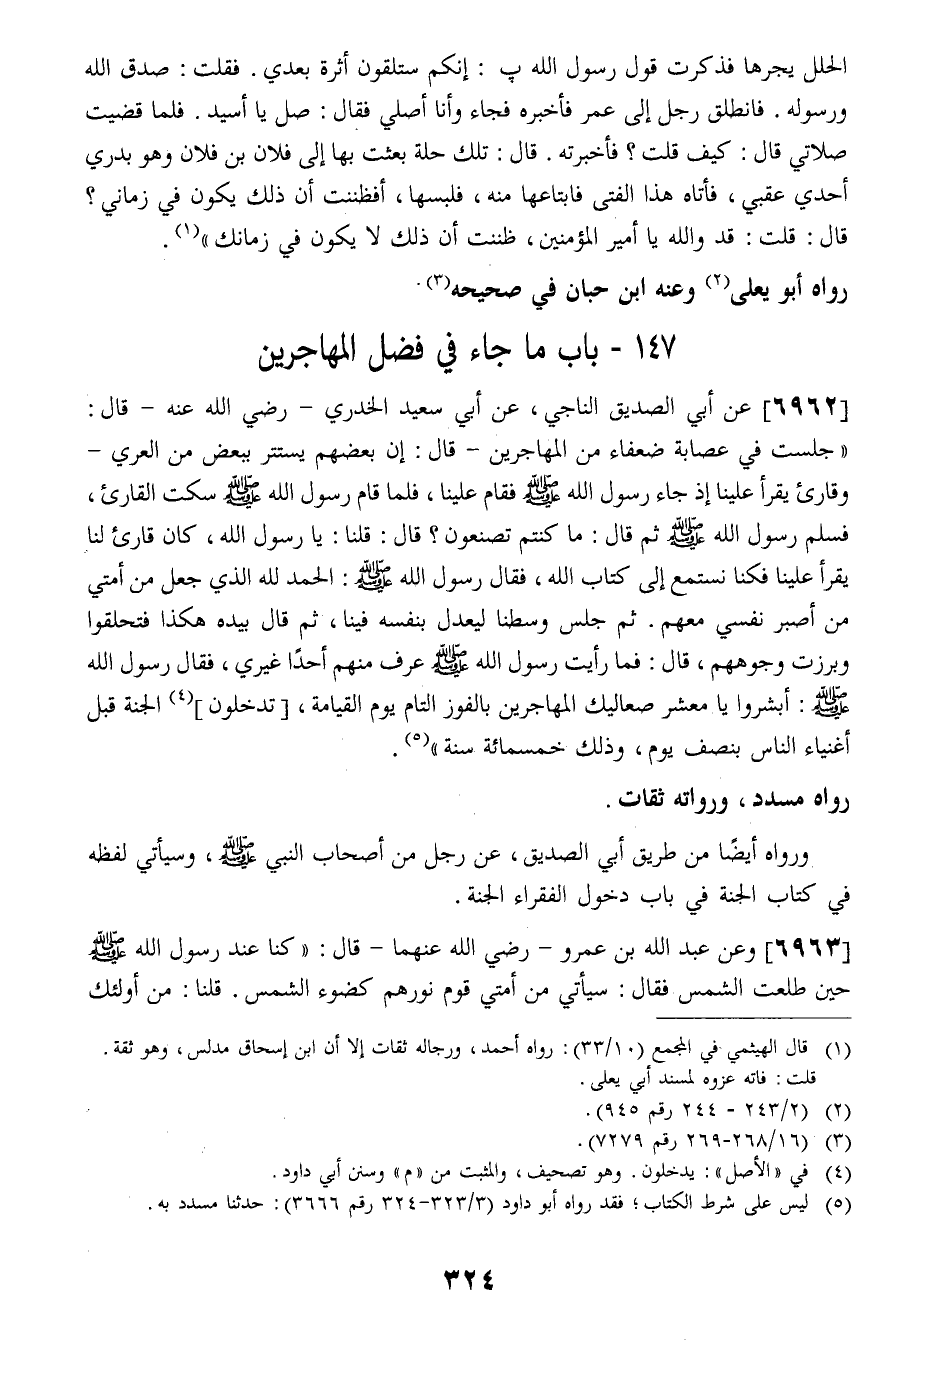 الحلل يجرها فذكرت قول رسول الله پ : إنكم ستلقون أثرة بعدي . فقلت : صدق الله
ورسوله . فانطلق رجل إلى عمر فأخبره فجاء وأنا أصلي فقال : صل يا أسيد . فلما قضيت
صلاتي قال : كيف قلت ؟ فأخبرته . قال : تلك حلة بعثت بها إلى فلان بن فلان وهو بدري
أحدي عقبي ، فأتاه هذا الفتى فابتاعها منه ، فلبسها ، أفظننت أن ذلك يكون في زماني ؟
قال : قلت : قد والله يا أمير المؤمنين ، ظننت أن ذلك لا يكون في زمانك »(١) .
رواه أبو يعلى(٢) وعنه ابن حبان في صحيحه(٣) .
١٤٧ - باب ما جاء في فضل المهاجرين
[٦٩٦٢] عن أبي الصديق الناجي ، عن أبي سعيد الخدري – رضي الله عنه – قال :
« جلست في عصابة ضعفاء من المهاجرين – قال : إن بعضهم يستتر ببعض من العري –
وقارئ يقرأ علينا إذ جاء رسول الله ﷺ فقام علينا ، فلما قام رسول الله ﷺ سكت القارئ ،
فسلم رسول الله ﷺ ثم قال : ما كنتم تصنعون ؟ قال : قلنا : يا رسول الله ، كان قارئ لنا
يقرأ علينا فكنا نستمع إلى كتاب الله ، فقال رسول الله ﷺ : الحمد لله الذي جعل من أمتي
من أصبر نفسي معهم . ثم جلس وسطنا ليعدل بنفسه فينا ، ثم قال بيده هكذا فتحلقوا
وبرزت وجوههم ، قال : فما رأيت رسول الله ﷺ عرف منهم أحدًا غيري ، فقال رسول الله
ﷺ : أبشروا يا معشر صعاليك المهاجرين بالفوز التام يوم القيامة ، [ تدخلون ](٤) الجنة قبل
أغنياء الناس بنصف يوم ، وذلك خمسمائة سنة »(٥) .
رواه مسدد ، ورواته ثقات .
ورواه أيضًا من طريق أبي الصديق ، عن رجل من أصحاب النبي ﷺ ، وسيأتي لفظه
في كتاب الجنة في باب دخول الفقراء الجنة .
[٦٩٦٣] وعن عبد الله بن عمرو – رضي الله عنهما – قال : « كنا عند رسول الله ﷺ
حين طلعت الشمس فقال : سيأتي من أمتي قوم نورهم كضوء الشمس . قلنا : من أولئك
(١) قال الهيثمي في المجمع (٣٣/١٠) : رواه أحمد ، ورجاله ثقات إلا أن ابن إسحاق مدلس ، وهو ثقة .
قلت : فاته عزوه لمسند أبي يعلى .
(٢) (٢٤٣/٢ – ٢٤٤ رقم ٩٤٥) .
(٣) (٢٦٨/١٦-٢٦٩ رقم ٧٢٧٩) .
(٤) في «الأصل» : يدخلون . وهو تصحيف ، والمثبت من «م» وسنن أبي داود .
(٥) ليس على شرط الكتاب ؛ فقد رواه أبو داود (٣٢٣/٣-٣٢٤ رقم ٣٦٦٦) : حدثنا مسدد به .
٣٢٤